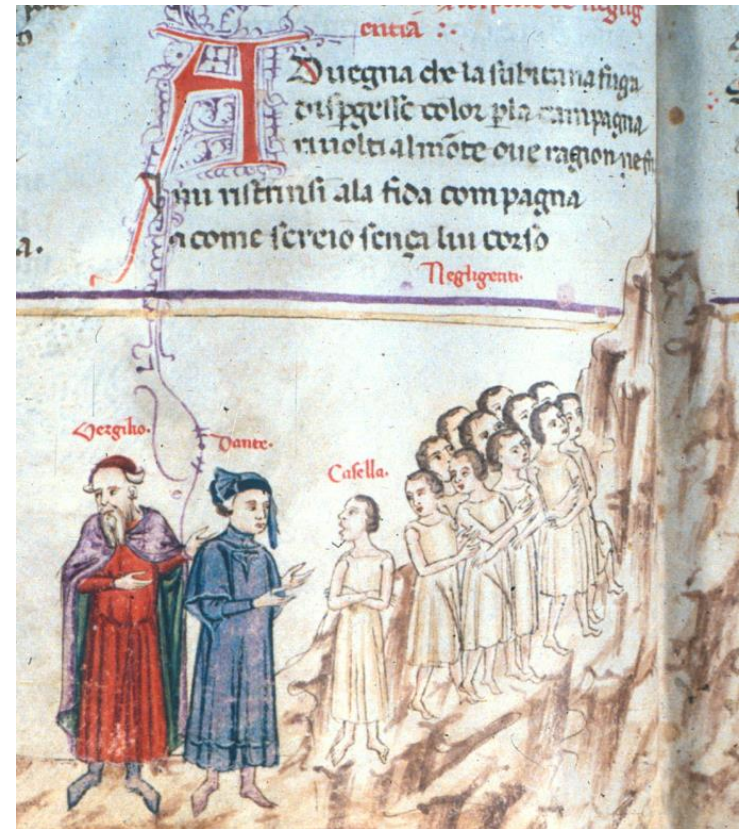 entiā :·
Aduegna che la subitana fuga
dispgesse color p la campagna
riuolti al mōte oue ragion ne
mi ristrinsi ala fida compagna
a come sereio sença lui corso
a.
Negligenti·
Vergilio·
Dante·
Casella·